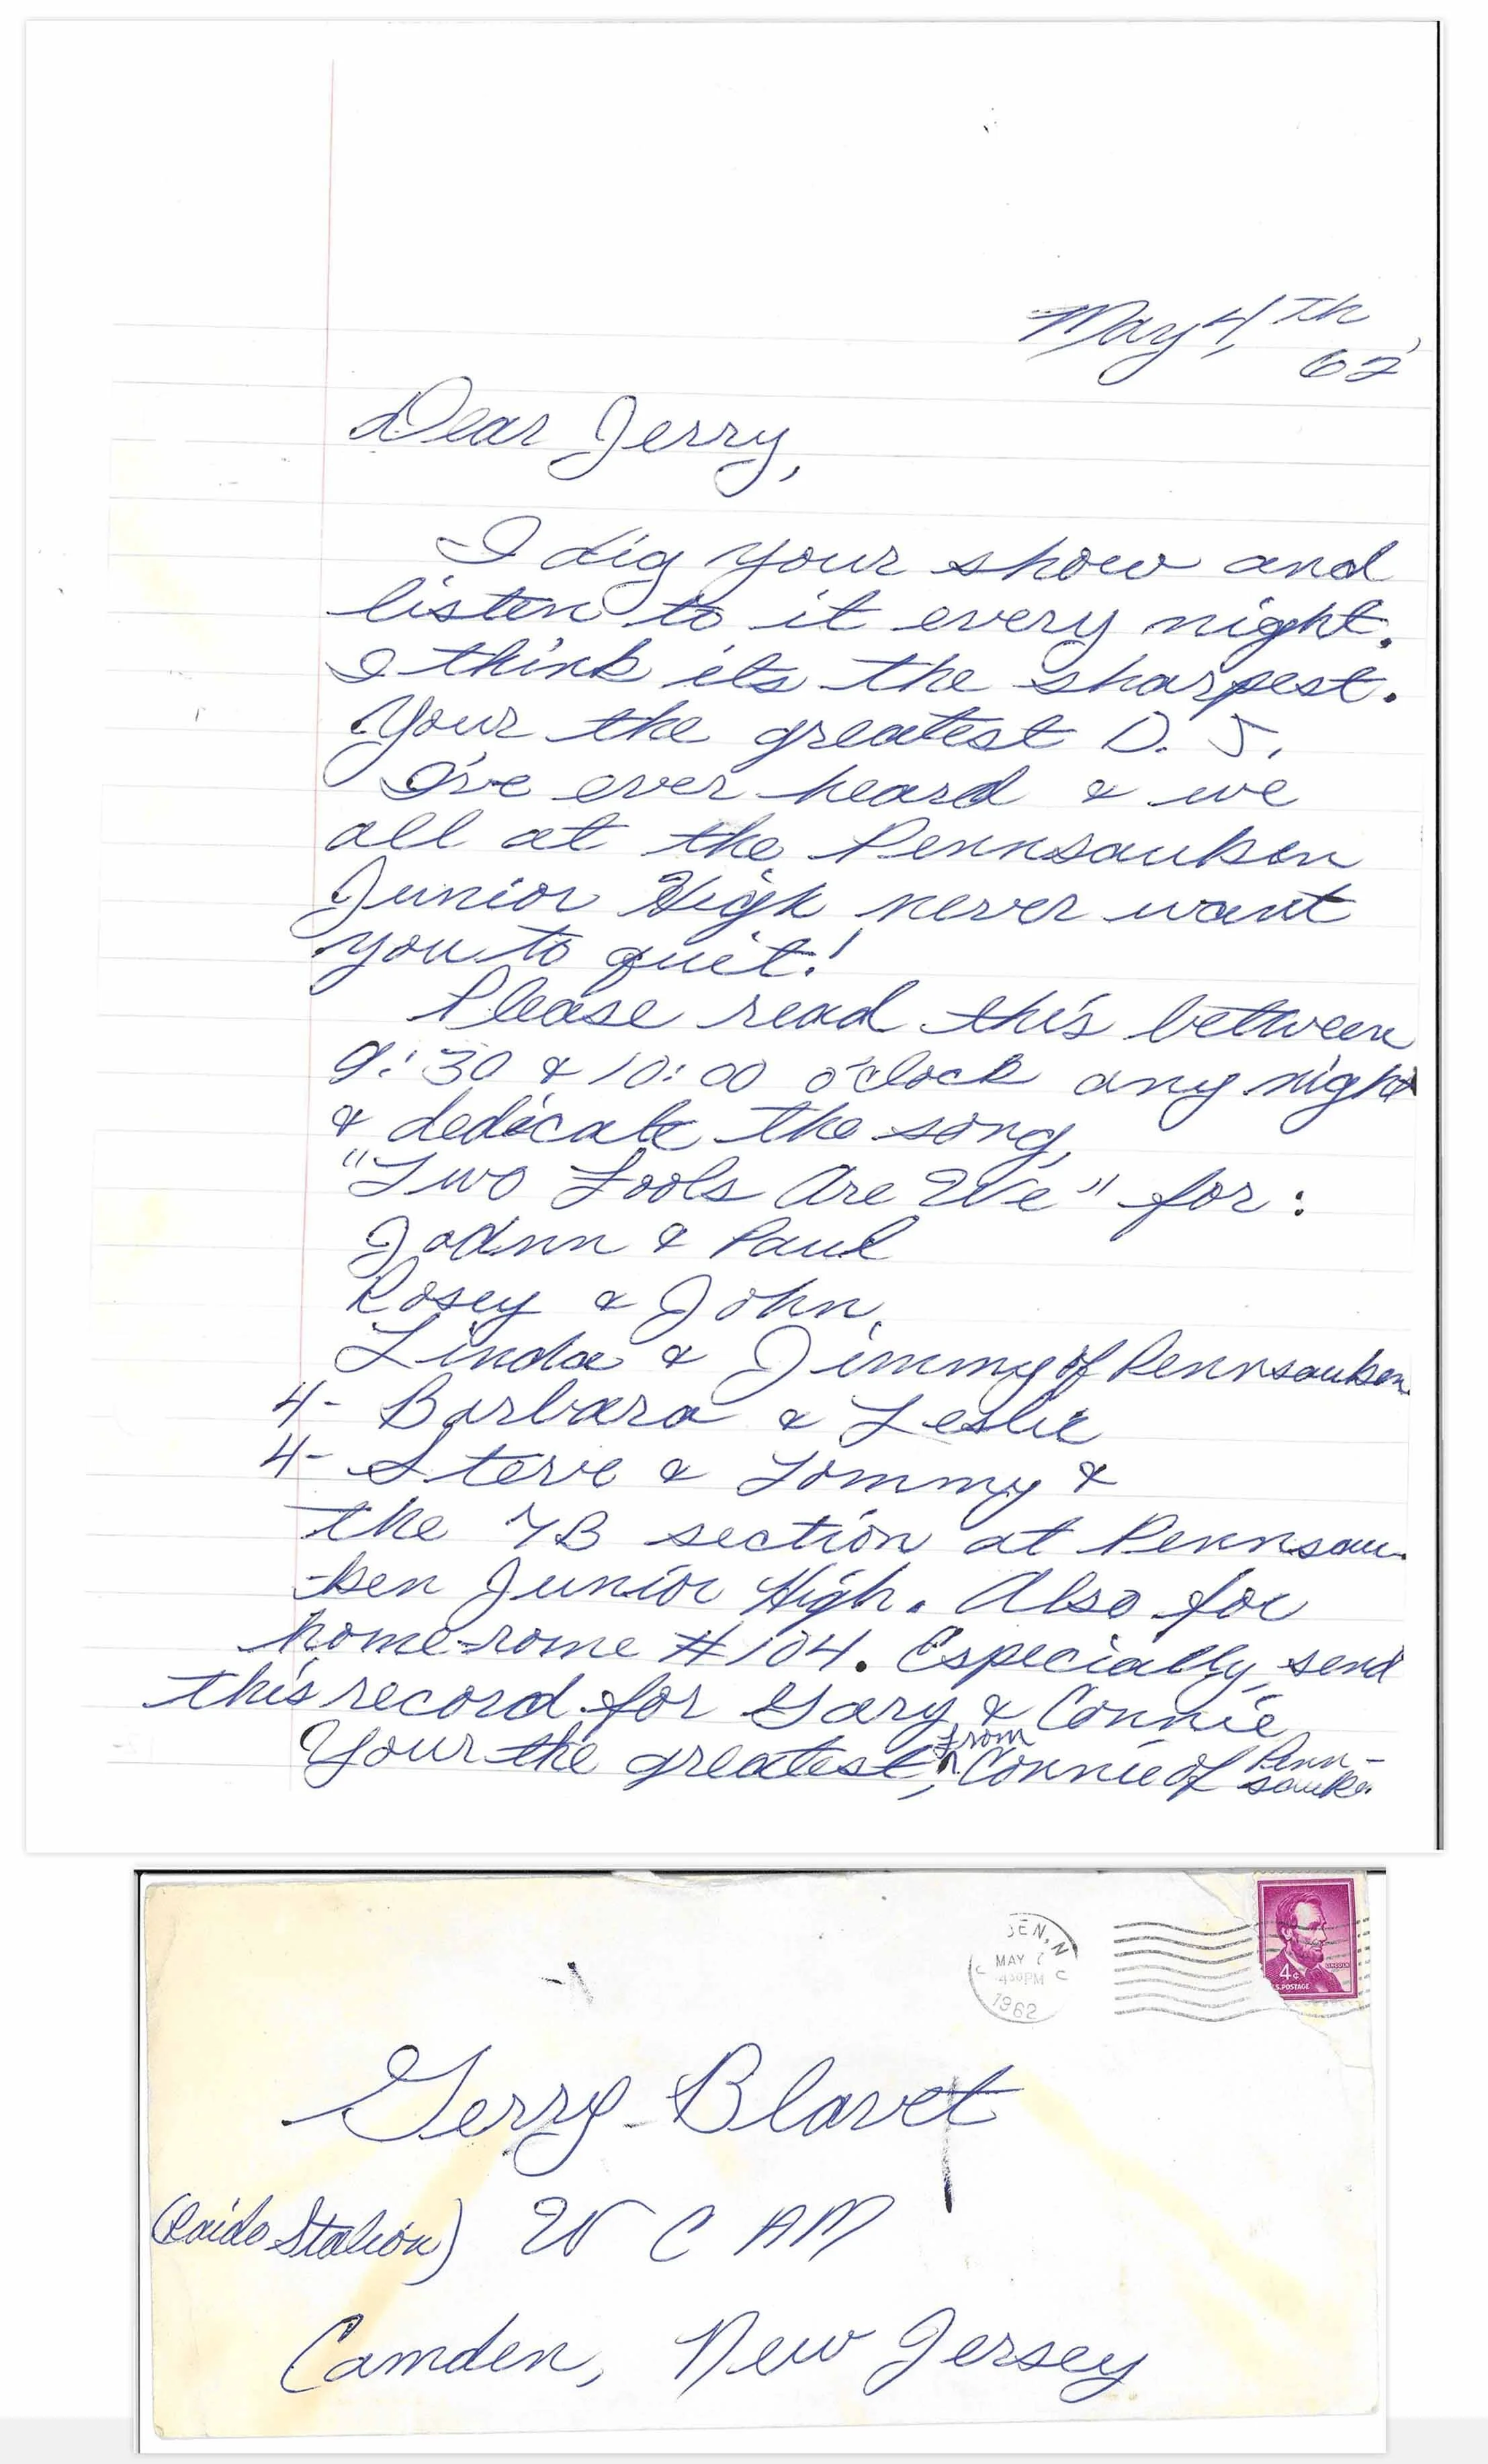 May 4, Th,
62
Dear Jerry,
I dig your show and
listen to it every night.
I think it's the sharpest.
Your the greatest D. J.
I've ever heard & we
all at the Pennsauken
Junior High never want
you to quit!
Please read this between
9:30 & 10:00 o'clock any night
& dedicate the song,
"Two Fools Are We" for:
JoAnn & Paul
Rosey & John,
Linda & Jimmy of Pennsauken.
4- Barbara & Leslie
4- Steve & Tommy &
the 7B section at Pennsau-
-ken Junior High. Also for
home-rome #104. Especially, send
this record for Gary & Connie
Your the greatest, from Connie of Penn-
sauken
DEN, N
MAY
4 30 PM
1962
4¢
U.S. POSTAGE
LINCOLN
Gerry Blavet
(Raido Station) W C A M
Camden, New Jersey